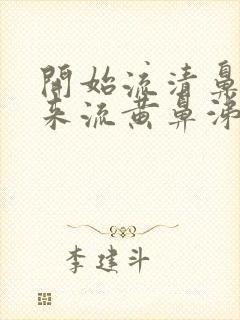 開始流清鼻
来流黄鼻涕
李建斗